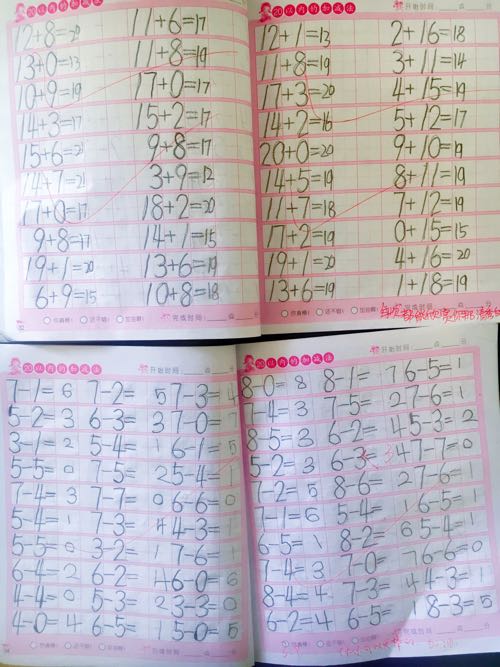 20以内的加减法
开始时间: 点 分
12+8=20 11+6=17
13+0=13 11+8=19
10+9=19 17+0=17
14+3=17 15+2=17
15+6=21 9+8=17
14+7=21 3+9=12
17+0=17 18+2=20
9+8=17 14+1=15
19+1=20 13+6=19
6+9=15 10+8=18
你真棒! 还不错! 加油啊! 完成时间: 点 分
20以内的加减法
开始时间: 点 分
12+1=13 2+16=18
11+8=19 3+11=14
17+3=20 4+15=19
14+2=16 5+12=17
20+0=20 9+10=19
14+5=19 8+11=19
11+7=18 7+12=19
17+2=19 0+15=15
19+1=20 4+16=20
13+6=19 1+18=19
你真棒! 还不错! 加油啊! 完成时间
20以内的加减法
开始时间: 点 分
7-1=6 7-2=5 7-3=4
5-2=3 6-3=3 7-0=7
3-1=2 5-4=1 6-1=5
5-5=0 7-5=2 5-4=1
7-4=3 7-7=0 6-6=0
5-4=1 7-3=4 4-3=1
5-5=0 3-2=1 7-6=1
6-4=2 6-2=4 6-0=6
4-4=0 5-3=2 3-3=0
4-0=4 6-5=1 5-0=5
你真棒! 还不错! 加油啊! 完成时间: 点 分
20以内的加减法
开始时间: 点 分
8-0=8 8-1=7 6-5=1
7-4=3 7-5=2 7-6=1
8-5=3 6-2=4 5-3=2
5-2=3 6-3= 4 7-7=0
7-2=5 8-6=2 7-6=1
7-1=6 5-4=1 6-5=1
6-5=1 8-2=6 5-4=1
7-4=3 7-0=7 6-6=0
8-4=4 7-3=4 4-3=1
6-2=4 6-5= 8-3=5
你真棒! 还不错! 加油啊! 完成时间: 点 分